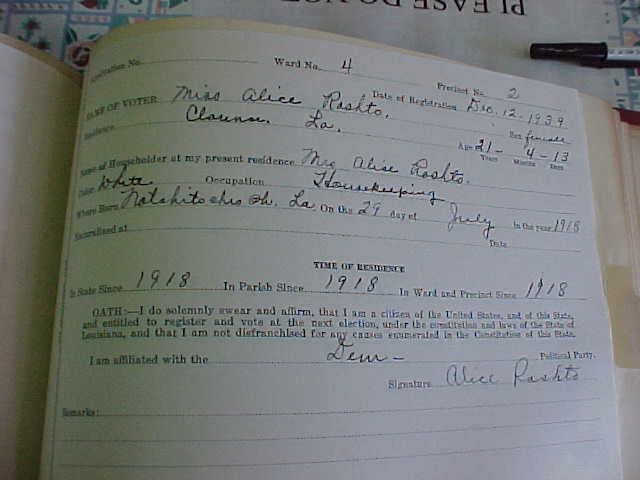 PLEASE DO NO
Registration No. Ward No. 4 Precinct No. 2
NAME OF VOTER Miss Alice Rashto. Date of Registration Dec. 12-1939
Residence Clarence. La. Sex female
Age 21- 4-13
Years Months Days
Name of Householder at my present residence Mrs Alice Rashto.
Color White Occupation Housekeeping
Where Born Natchitoches Ph. La. On the 29 day of July in the year 1918
Naturalized at Date
TIME OF RESIDENCE
In State Since 1918 In Parish Since 1918 In Ward and Precinct Since 1918
OATH:—I do solemnly swear and affirm, that I am a citizen of the United States, and of this State,
and entitled to register and vote at the next election, under the constitution and laws of the State of
Louisiana, and that I am not disfranchised for any causes enumerated in the Constitution of this State.
I am affiliated with the Dem- Political Party.
Signature Alice Rashto
Remarks: